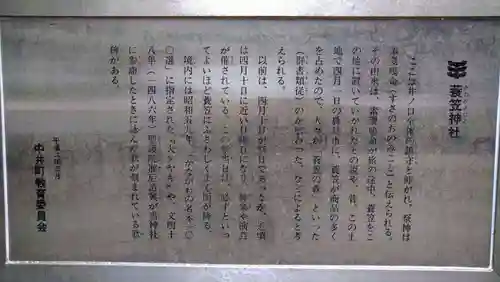 蓑笠神社
ここは井ノ口の総鎮守と仰がれ、祭神は
素戔嗚命（すさのおのみこと）と伝えられる。
その由来は、素戔嗚命が旅の途中、蓑笠をこ
の地に置いていかれたとの説や、昔、この土
地で四月一日の農具市に、蓑笠が商品の多く
を占めたので、人々が「蓑笠の森」といった
（群書類従）のが伝わった、などによると考
えられる。
以前は、四月十日が祭日であったが、近頃
は四月十日に近い日曜日になり、神楽や演芸
が催されている。この祭当日は、必ずといっ
てよいほど蓑笠にふさわしく、よく雨が降る。
境内には昭和五九年「かながわの名木一〇
〇選」に指定された「大ケヤキ」や、文明十
八年（一四八六年）聖護院准后道興が当神社
に参詣したときに詠んだ歌が刻まれている歌
碑がある。
中井町教育委員会